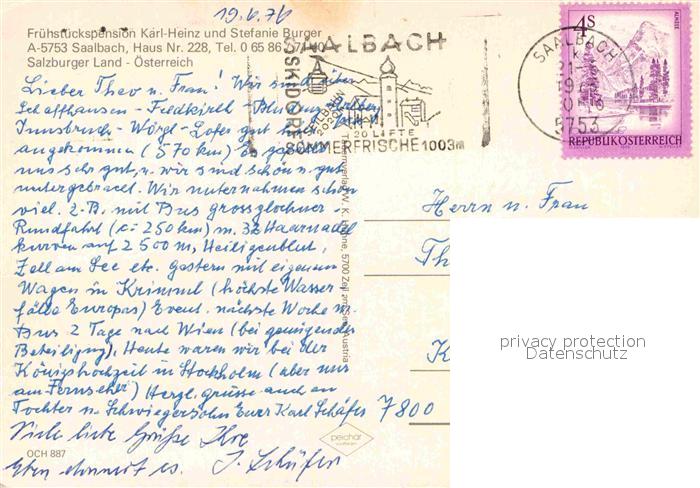 19.6.76
Frühstückspension Karl-Heinz und Stefanie Burger
A-5753 Saalbach, Haus Nr. 228, Tel. 0 65 86
Salzburger Land - Österreich
SAALBACH
SKIDORF
20 LIFTE
SOMMERFRISCHE 1003m
SAALBACH
5753
4S
REPUBLIK ÖSTERREICH
Lieber Theo u. Frau! Wir sind über
Schaffhausen - Feldkirch - Bludenz - Arlberg
Innsbruck - Wörgl - Lofer gut hier
angekommen (570 km) Es gefällt
uns sehr gut, u. wir sind schön u. gut
untergebracht. Wir unternahmen schon
viel. z.B. mit Bus grossglockner-
Rundfahrt (c= 250 km) m. 32 Haarnadel
kurven auf 2500 m, Heiligenblut,
Zell am See etc. gestern mit eigenem
Wagen in Krimml (höchste Wasser
fälle Europas) Event. nächste Woche m.
Bus 2 Tage nach Wien (bei genügender
Beteiligung), Heute waren wir bei der
Königshochzeit in Stockholm (aber nur
am Fernseher) Herzl. grüsse auch an
Tochter u. Schwiegersohn Euer Karl Schäfer
Viele liebe Grüße Ihre
J. Schäfer
OCH 887
W. K. Höhne, 5700 Zell am See, Austria
peichär
Herrn u. Frau
Th
K
7800
privacy protection
Datenschutz